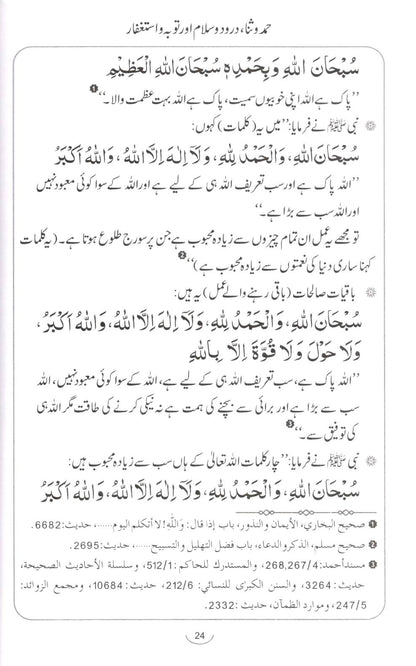 حمد و ثنا، درود و سلام اور توبہ و استغفار
سُبْحَانَ اللهِ وَبِحَمْدِهٖ سُبْحَانَ اللهِ الْعَظِيْمِ
’’پاک ہے اللہ اپنی خوبیوں سمیت، پاک ہے اللہ بہت عظمت والا۔‘‘ ❶
✽ نبی ﷺ نے فرمایا: ’’میں یہ (کلمات) کہوں:
سُبْحَانَ اللهِ، وَالْحَمْدُ لِلّٰهِ، وَلَآ اِلٰهَ اِلَّا اللهُ، وَاللهُ اَكْبَرُ
’’اللہ پاک ہے اور سب تعریف اللہ ہی کے لیے ہے اور اللہ کے سوا کوئی معبود نہیں
اور اللہ سب سے بڑا ہے۔‘‘
تو مجھے یہ عمل ان تمام چیزوں سے زیادہ محبوب ہے جن پر سورج طلوع ہوتا ہے۔ (یہ کلمات
کہنا ساری دنیا کی نعمتوں سے زیادہ محبوب ہے)‘‘ ❷
✽ باقیات صالحات (باقی رہنے والے عمل) یہ ہیں:
سُبْحَانَ اللهِ، وَالْحَمْدُ لِلّٰهِ، وَلَآ اِلٰهَ اِلَّا اللهُ، وَاللهُ اَكْبَرُ،
وَلَا حَوْلَ وَلَا قُوَّةَ اِلَّا بِاللهِ
’’اللہ پاک ہے، سب تعریف اللہ ہی کے لیے ہے، اللہ کے سوا کوئی معبود نہیں، اللہ
سب سے بڑا ہے اور برائی سے بچنے کی ہمت ہے نہ نیکی کرنے کی طاقت مگر اللہ ہی
کی توفیق سے۔‘‘ ❸
✽ نبی ﷺ نے فرمایا: ’’چار کلمات اللہ تعالیٰ کے ہاں سب سے زیادہ محبوب ہیں:
سُبْحَانَ اللهِ، وَالْحَمْدُ لِلّٰهِ، وَلَآ اِلٰهَ اِلَّا اللهُ، وَاللهُ اَكْبَرُ
❶ صحيح البخاري، الأيمان والنذور، باب إذا قال: وَاللّٰهِ! لا أتكلم اليوم......، حديث: 6682.
❷ صحيح مسلم، الذكر والدعاء، باب فضل التهليل والتسبيح......، حديث: 2695.
❸ مسند أحمد: 268,267/4، والمستدرك للحاكم: 512/1، وسلسلة الأحاديث الصحيحة،
حديث: 3264، والسنن الكبرٰى للنسائي: 212/6، حديث: 10684، ومجمع الزوائد:
247/5، وموارد الظمآن، حديث: 2332.
24